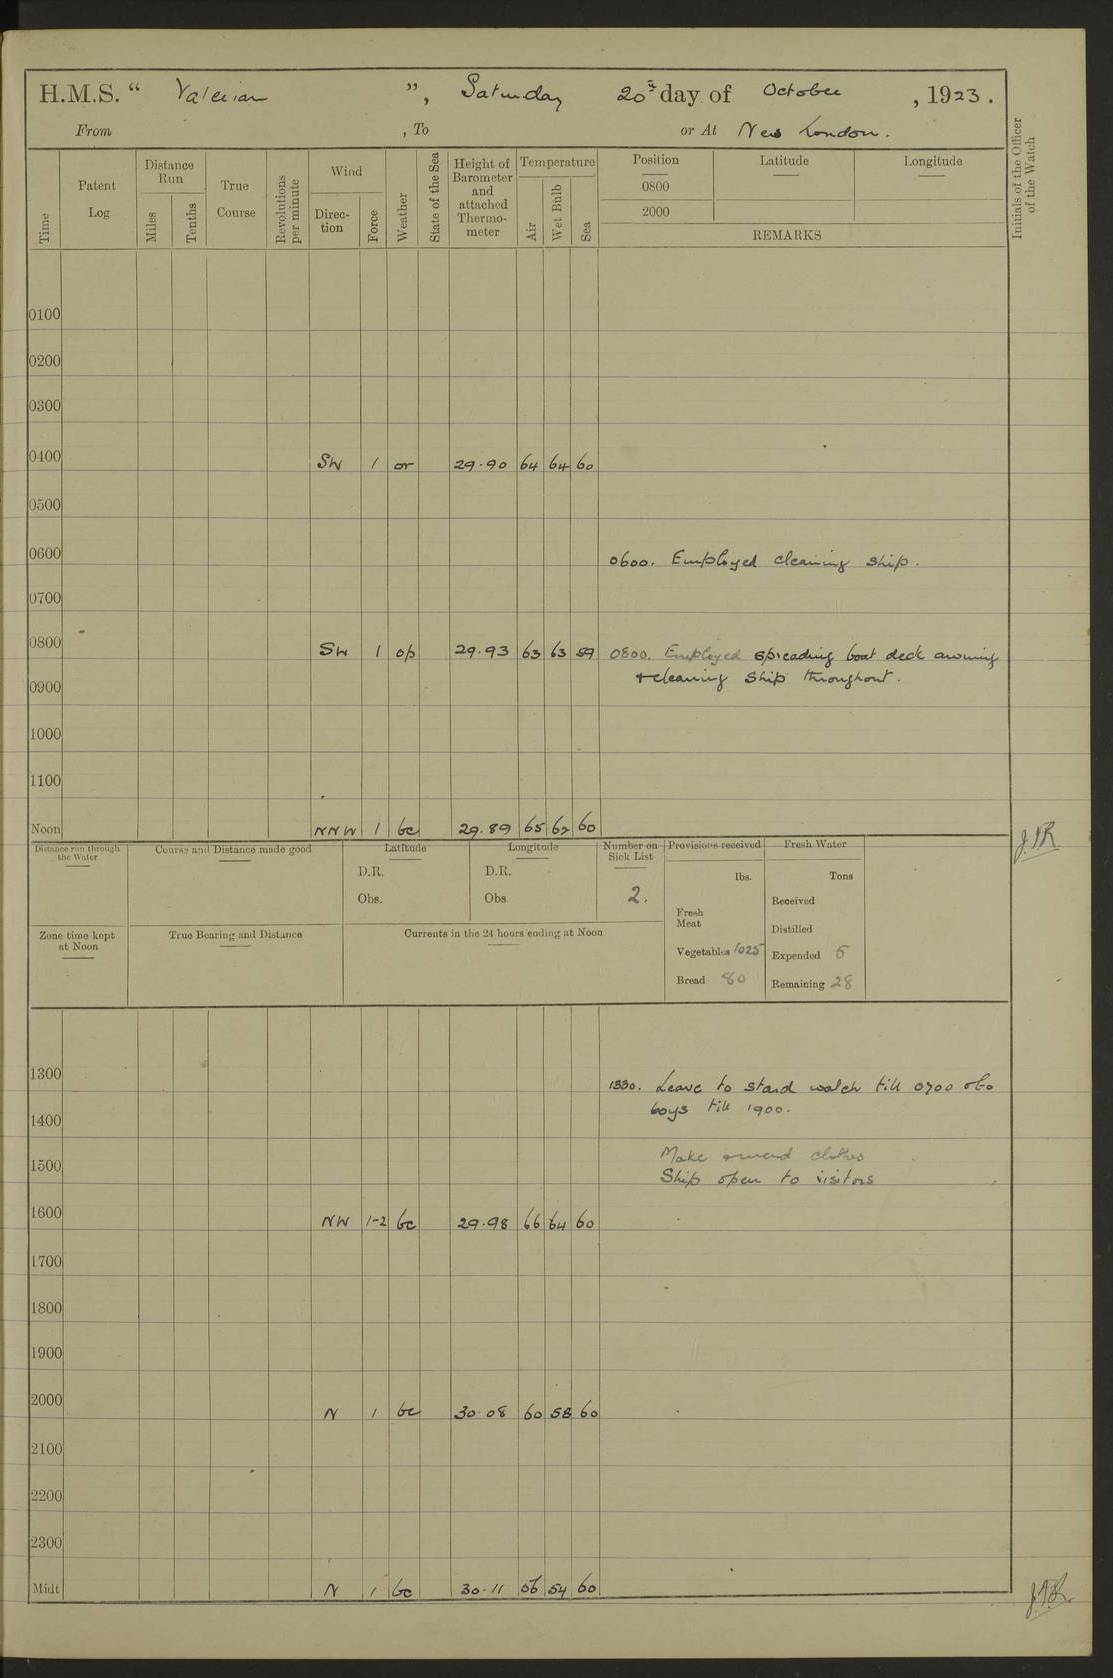 H.M.S. “ Valerian ”, Saturday 20th day of October , 1923.
From , To or At New London.
Time
Patent Log
Distance Run
Miles
Tenths
True Course
Revolutions per minute
Wind
Direc-tion
Force
Weather
State of the Sea
Height of Barometer and attached Thermo-meter
Temperature
Air
Wet Bulb
Sea
Position
0800
2000
Latitude
Longitude
REMARKS
Initials of the Officer of the Watch
0100
0200
0300
0400 SW 1 or 29.90 64 64 60
0500
0600 0600. Employed cleaning ship.
0700
0800 SW 1 op 29.93 63 63 59 0800. Employed spreading boat deck awning
+ cleaning ship throughout.
0900
1000
1100
Noon NNW 1 bc 29.89 65 62 60
Distance run through the Water
Course and Distance made good
Latitude
D.R.
Obs.
Longitude
D.R.
Obs.
Number on Sick List
2.
Provisions received
lbs.
Fresh Meat
Vegetables 1025
Bread 80
Fresh Water
Tons
Received
Distilled
Expended 5
Remaining 28
Zone time kept at Noon
True Bearing and Distance
Currents in the 24 hours ending at Noon
1300 1330. Leave to stard watch till 0700
boys till 1900.
1400
1500 Make + mend clothes
Ship open to visitors
1600 NW 1-2 bc 29.98 66 64 60
1700
1800
1900
2000 N 1 bc 30.08 60 58 60
2100
2200
2300
Midt N 1 bc 30.11 54 60